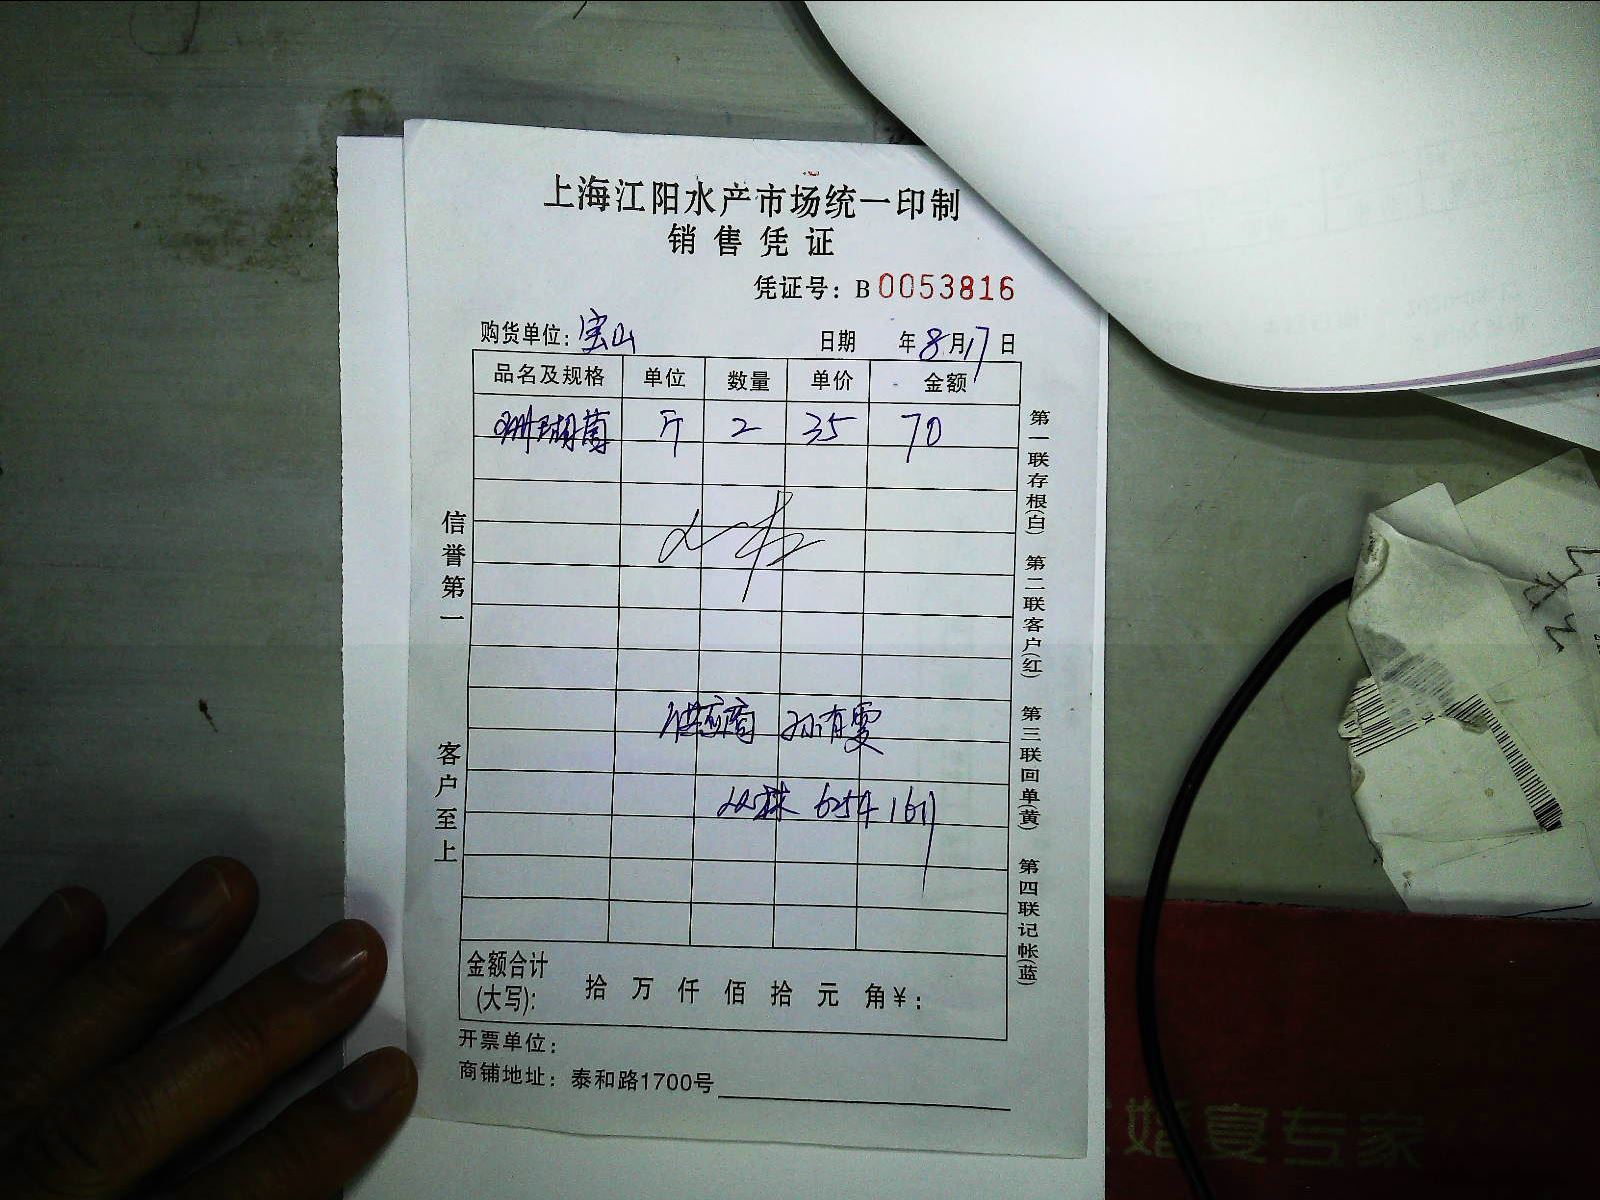 上海江阳水产市场统一印制
销售凭证
凭证号：B 0053816
购货单位：宝山 日期 年8月17日
品名及规格 单位 数量 单价 金额
珊瑚菌 斤 2 35 70
供应商 孙有雯
6254 1611
金额合计
(大写)： 拾 万 仟 佰 拾 元 角 ¥：
开票单位：
商铺地址：泰和路1700号
信誉第一
客户至上
第一联存根(白) 第二联客户(红) 第三联回单(黄) 第四联记帐(蓝)
婚宴专家